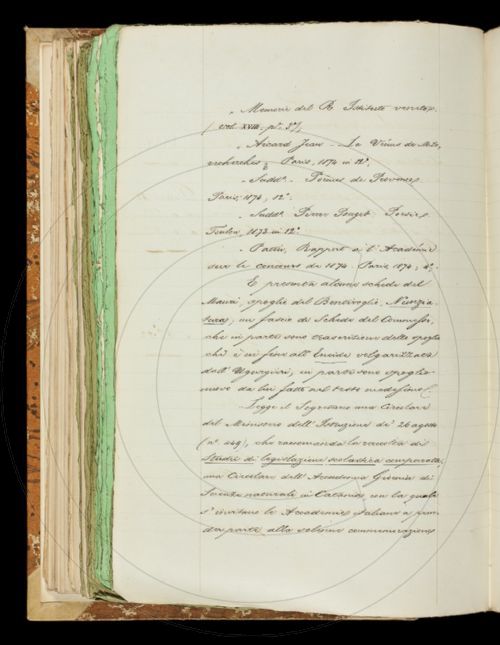 „ Memorie del R. Istituto veneto,
(vol. XVIII, pe. 3ª),
„ Aicard Jean – La Vénus de Milo,
recherches &, Paris, 1874 in 12°.
„ Sudd°. – Poèmes de Provence
Paris, 1874, 12°.
„ Sudd°. Pierre Puget. Poésie,
Toulon, 1873 in 12°.
„ Patin, Rapport à l'Académie
sur le concours de 1874. Paris, 1874, 4°.
E presenta alcune schede del
Manni, spoglio del Bentivoglio, Nunzia-
tura, un fascio di Schede del
che in parte sono trascrizione dello spoglio
ch'è in fine all'Eneide volgarizzata
dell'Ugurgieri, in parte sono spoglio
nuovo da lui fatto nel testo medesimo.
Legge il Segretario una Circolare
del Ministero dell'Istruzione de' 26 agosto
(n°. 449), che raccomanda la raccolta di
Studii di legislazione scolastica comparata,
una Circolare dell'Accademia Gioenia di
Scienze naturali in Catania, con la quale
s'invitano le Accademie italiane a pren-
der parte alla solenne commemorazione